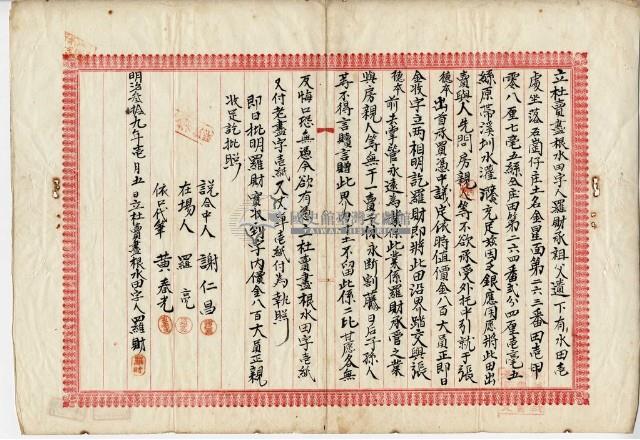 立杜賣盡根水田字人羅財承祖父遺下有水田壱
處坐落五崗仔庄土名金星面第一六三番田壱甲
零八厘七毛五絲仝庄田第二六四番貳分四厘壱毫五
絲原帶溪圳水灌溉充足茲因乏銀應用應將此田出
賣與人先問房親人等不欲承受外托中引就于張
穗本出首承買憑中議定依時值價金八百大員正即日
金收字立兩相明訖羅財即將此田沿界踏交與張
穗本前去掌管永遠為業保此業係羅財承管之業
與房親人等無干一賣千休永斷割藤日后子孫人
等不得言贖言贈此界人土不留此係二比甘愿各無
反悔口恐無憑今欲有憑立杜賣盡根水田字壱紙
又付老盡字壱紙又丈單壱紙付為執照
即日批明羅財實收到字内價金八百大員正親
收足訖批照
說合中人 謝仁昌
在場人 羅亮
依口代筆 黃春光
明治叁拾九年壱月五日立杜賣盡根水田字人羅財
國史館臺灣文獻館